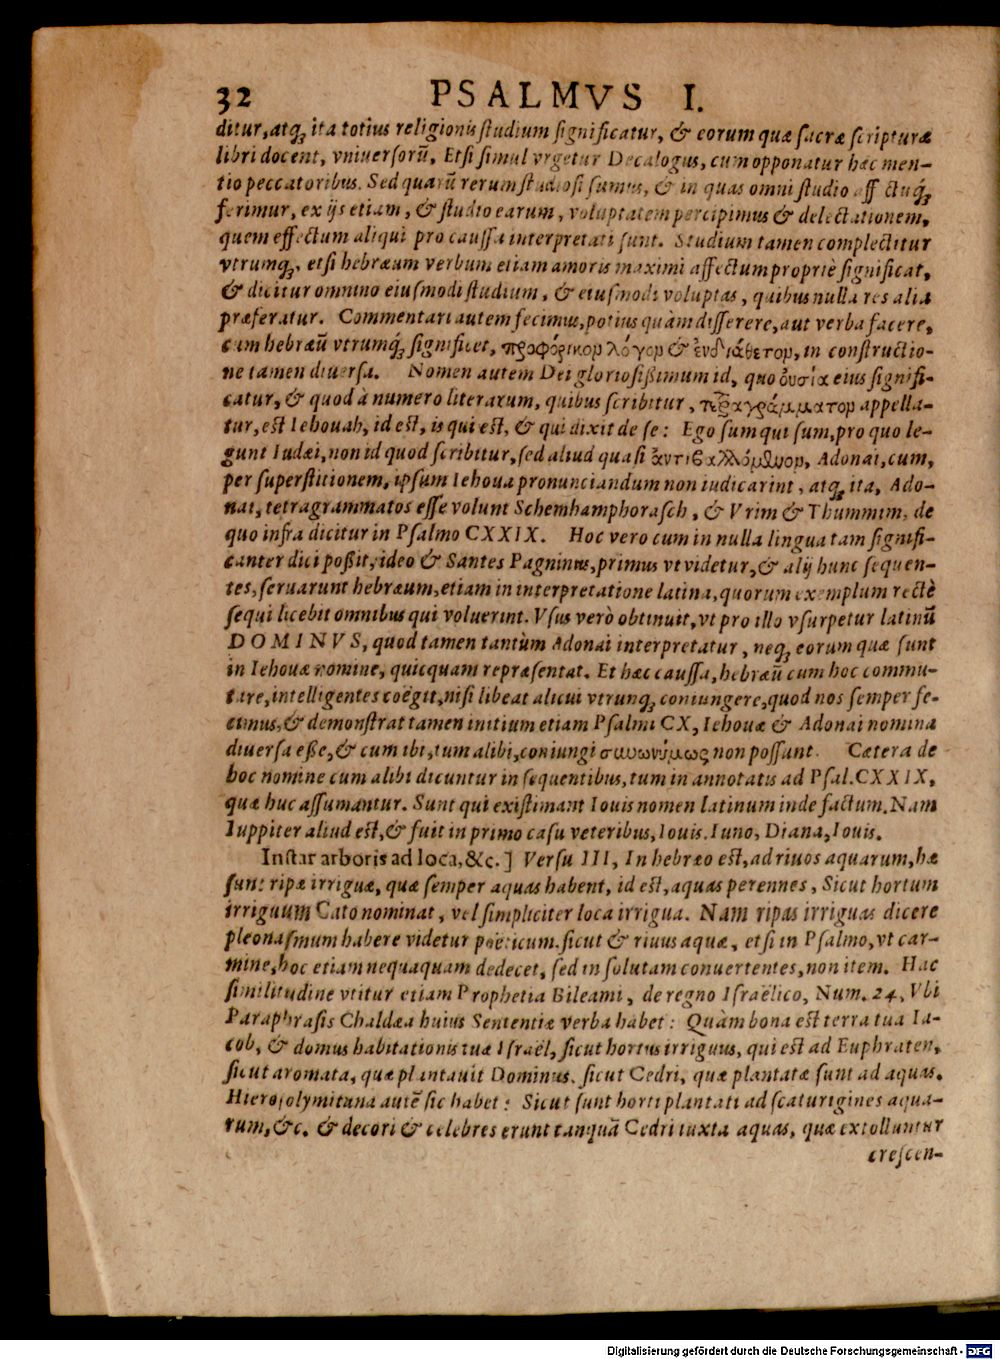 32 PSALMVS I.
ditur, atq́; ita totius religionis ſtudium ſignificatur, & eorum quæ ſacræ ſcripturæ
libri docent, vniuerſorũ, Etſi ſimul vrgetur Decalogus, cum opponatur hæc men-
tio peccatoribus. Sed quarũ rerum ſtudioſi ſumus, & in quas omni ſtudio aff ctuq́;
ferimur, ex ijs etiam, & ſtudio earum, voluptatem percipimus & delectationem,
quem effectum aliqui pro cauſſa interpretati ſunt. Studium tamen complectitur
vtrumq́;, etſi hebræum verbum etiam amoris maximi affectum propriè ſignificat,
& dicitur omnino eiuſmodi ſtudium, & eiuſmodi voluptas, quibus nulla res alia
præferatur. Commentari autem fecimus, potius quàm differere, aut verba facere,
cum hebræũ vtrumq́; ſignificet, προφόρικον λόγον & ἐνδιάθετον, in conſtructio-
ne tamen diuerſa. Nomen autem Dei glorioſißimum id, quo οὐσία eius ſignifi-
catur, & quod à numero literarum, quibus ſcribitur, τετραγράμματον appella-
tur, eſt Iehouah, id eſt, is qui eſt, & qui dixit de ſe: Ego ſum qui ſum, pro quo le-
gunt Iudæi, non id quod ſcribitur, ſed aliud quaſi ἀντιβαλλόμενον, Adonai, cum,
per ſuperſtitionem, ipſum Iehoua pronunciandum non iudicarint, atq́; ita, Ado-
nai, tetragrammatos eſſe volunt Schemhamphoraſch, & Vrim & Thummim, de
quo infra dicitur in Pſalmo CXXIX. Hoc vero cum in nulla lingua tam ſignifi-
canter dici poßit, ideo & Santes Pagninus, primus vt videtur, & alij hunc ſequen-
tes, ſeruarunt hebræum, etiam in interpretatione latina, quorum exemplum rectè
ſequi licebit omnibus qui voluerint. Vſus verò obtinuit, vt pro illo vſurpetur latinũ
DOMINVS, quod tamen tantùm Adonai interpretatur, neq́; eorum quæ ſunt
in Iehouæ nomine, quicquam repræſentat. Et hæc cauſſa, hebræũ cum hoc commu-
tare, intelligentes coëgit, niſi libeat alicui vtrunq́; coniungere, quod nos ſemper fe-
cimus, & demonſtrat tamen initium etiam Pſalmi CX, Iehouæ & Adonai nomina
diuerſa eße, & cum ibi, tum alibi, coniungi συνωνύμως non poſſant. Cætera de
hoc nomine cum alibi dicuntur in ſequentibus, tum in annotatis ad Pſal. CXXIX,
quæ huc aſſumantur. Sunt qui exiſtimant Iouis nomen latinum inde factum. Nam
Iuppiter aliud eſt, & fuit in primo caſu veteribus, Iouis. Iuno, Diana, Iouis.
Inſtar arboris ad loca, &c.] Verſu III, In hebræo eſt, ad riuos aquarum, hæ
ſunt ripæ irriguæ, quæ ſemper aquas habent, id eſt, aquas perennes, Sicut hortum
irriguum Cato nominat, vel ſimpliciter loca irrigua. Nam ripas irriguas dicere
pleonaſmum habere videtur poëticum. ſicut & riuus aquæ, etſi in Pſalmo, vt car-
mine, hoc etiam nequaquam dedecet, ſed in ſolutam conuertentes, non item. Hac
ſimilitudine vtitur etiam Prophetia Bileami, de regno Iſraëlico, Num. 24, Vbi
Paraphraſis Chaldæa huius Sententiæ verba habet: Quàm bona eſt terra tua Ia-
cob, & domus habitationis tuæ Iſraël, ſicut hortus irriguus, qui eſt ad Euphraten,
ſicut aromata, quæ plantauit Dominus, ſicut Cedri, quæ plantatæ ſunt ad aquas.
Hieroſolymitana autẽ ſic habet: Sicut ſunt horti plantati ad ſcaturigines aqua-
rum, &c. & decori & celebres erunt tanquã Cedri iuxta aquas, quæ extolluntur
creſcen-
Digitalisierung gefördert durch die Deutsche Forschungsgemeinschaft - DFG